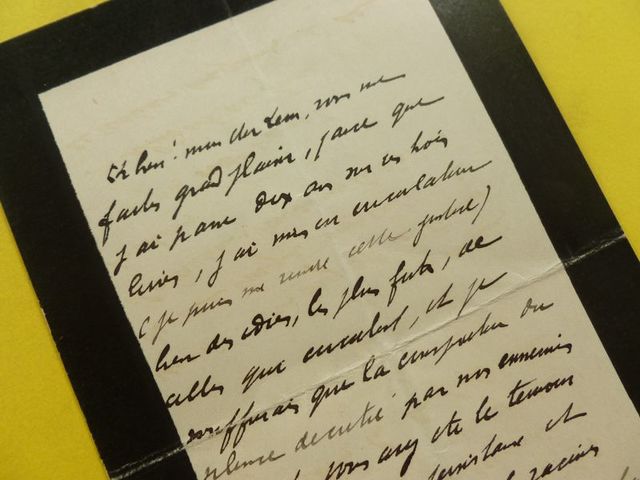 Eh bien! mon cher Leon, vous me
faites grand plaisir, parce que
j'ai passé dix ans sur ces trois
livres, j'ai mis en circulation
(je puis me rendre cette justice)
bien des idées, les plus fortes, de
celles qui circulent, et je
souffrais que la conspiration du
silence decrétée par nos ennemis
vous avez été le témoin
persistance et
racines